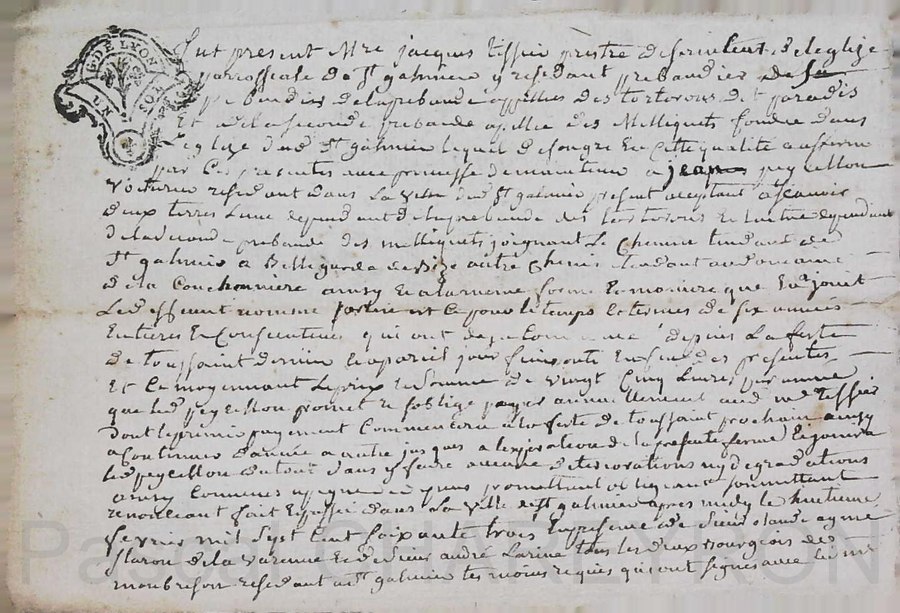 GDE LYON
UN SOL
Fut present Mre jacques tissier prestre desserviteur de leglize
parrossiale de st galmier y residant prebandier de la
prebandes de la prebande appellées des tortorons det paradis
Et de la seconde prebande apellée des Milliquets fondée dans
eglize dud st galmier lequel de son gre En cette qualité a afferm
par Ces presentes avec promesse de maintenir a jean peycellon
Voiturier residant dans La ville dud st galmier present acceptant a scavoir
deux terres Lune dependant de la prebande des tortorons Et lautre dependant
de la seconde prebande des milliquets joignant Le Chemin tendant de
st galmier a Bellegarde de Bize autre Chemin tendant au domaine
de la Couchonniere ainsy Et a la meme forme Et maniere que En a jouit
Led nomme fortier et Ce pour le temps Et termes de six années
Entieres Et Consecutives qui ont depuis La feste
de toussaint dernier Et a pareil jour finiront
Et Ce moyennant Le prix Et Somme de vingt Cinq Livres par année
que led peycellon promet Et soblige payer annuellement aud Mre tissier
dont le premier payement Commencera a la feste de toussaint prochain ainsy
a Continuer dannée a autre jusques a lexpiration de la presente ferme Et jouira
led peycellon du tout sans y faire aucune deteriorations ny degradations
ainsy Convenus promettant obligeant soumettant
renonceant fait Et passé dans La ville de st galmier apres midy le huitieme
fevrier mil sept Cent soixante trois En presence de sieur claude aymé
de la varenne Et de sieur andré Larine tous les deux Bourgeois de
residant a st galmier temoins requis qui ont signés avec led Mre
Pascal CHAREYRON